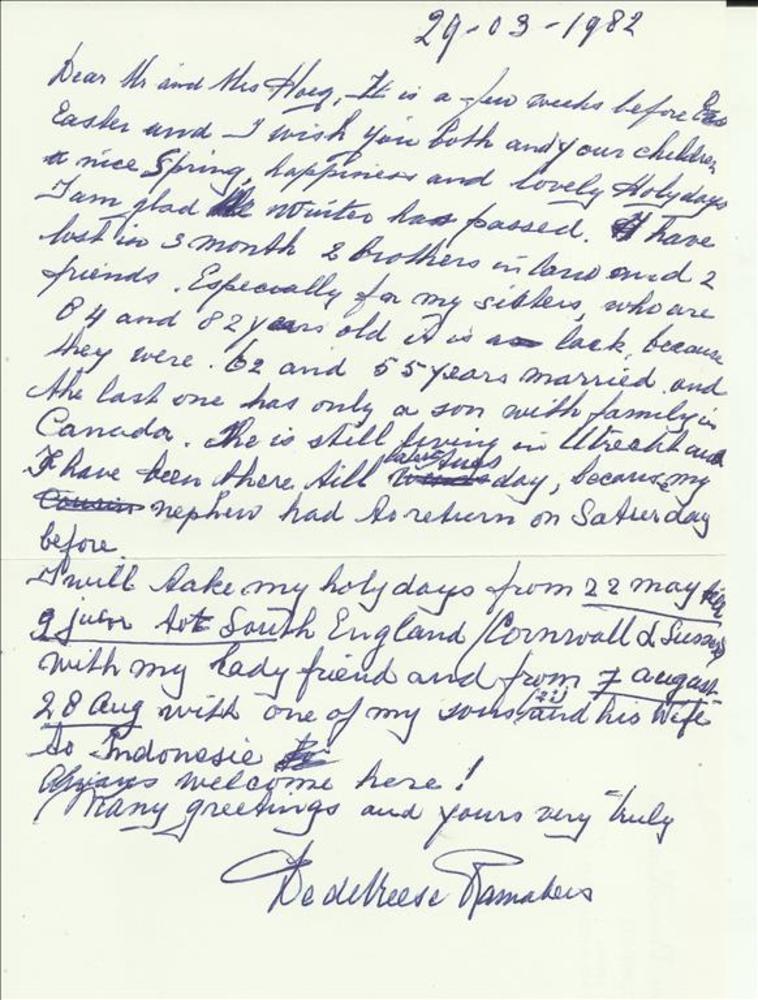 29-03-1982
Dear Mr and Mrs Hoeg, It is a few weeks before Eas
Easter and I wish you both and your children
a nice Spring, happiness and lovely Holydays
I am glad the winter has passed. I have
lost in 3 month 2 brothers in law and 2
friends. Especially for my sisters, who are
84 and 82 years old it is a lack, because
they were. 62 and 55 years married and
the last one has only a son with family in
Canada. She is still living in Utrecht and
I have been there till day, because my
Cousin nephew had to return on Saturday
before.
I will take my holydays from 22 may
9 juin tot South England /Cornwall & Sussex
with my lady friend and from 7 august
28 Aug with one of my sons and his wife
to Indonesie to
Always welcome here!
Many greetings and yours very truly
Ramakers